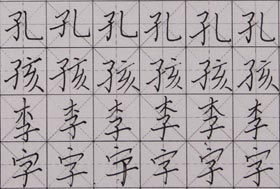 孔孔孔孔孔孔
孩孩孩孩孩孩
李李李李李李
字字字字字字